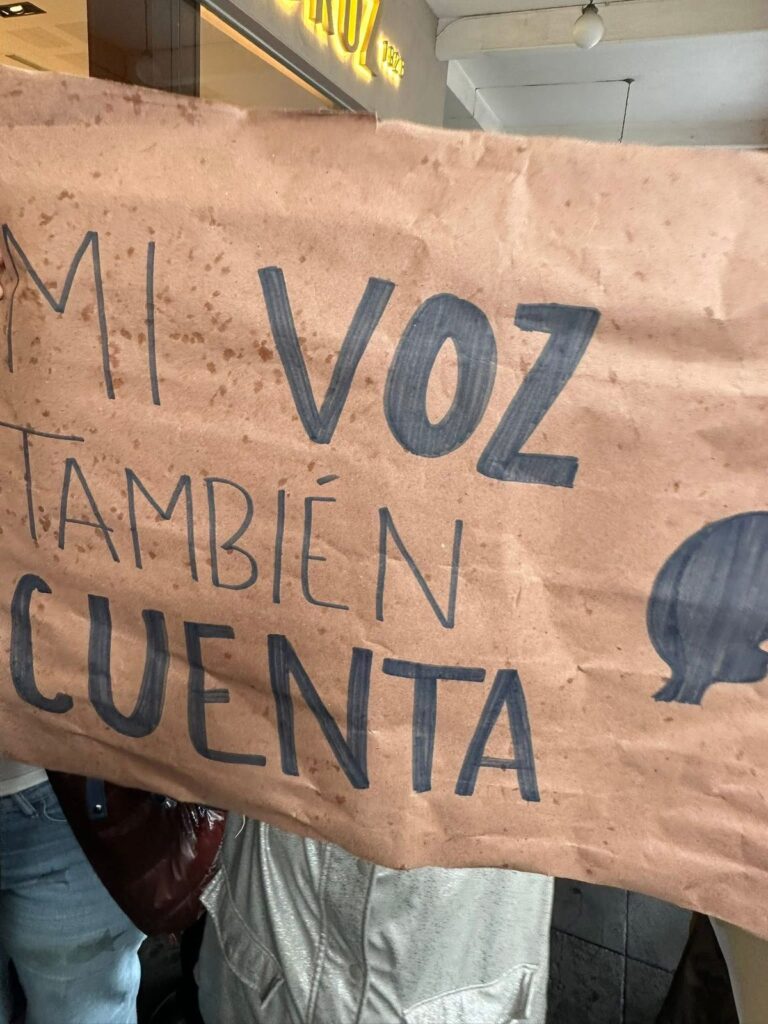 MI VOZ
TAMBIÉN
CUENTA